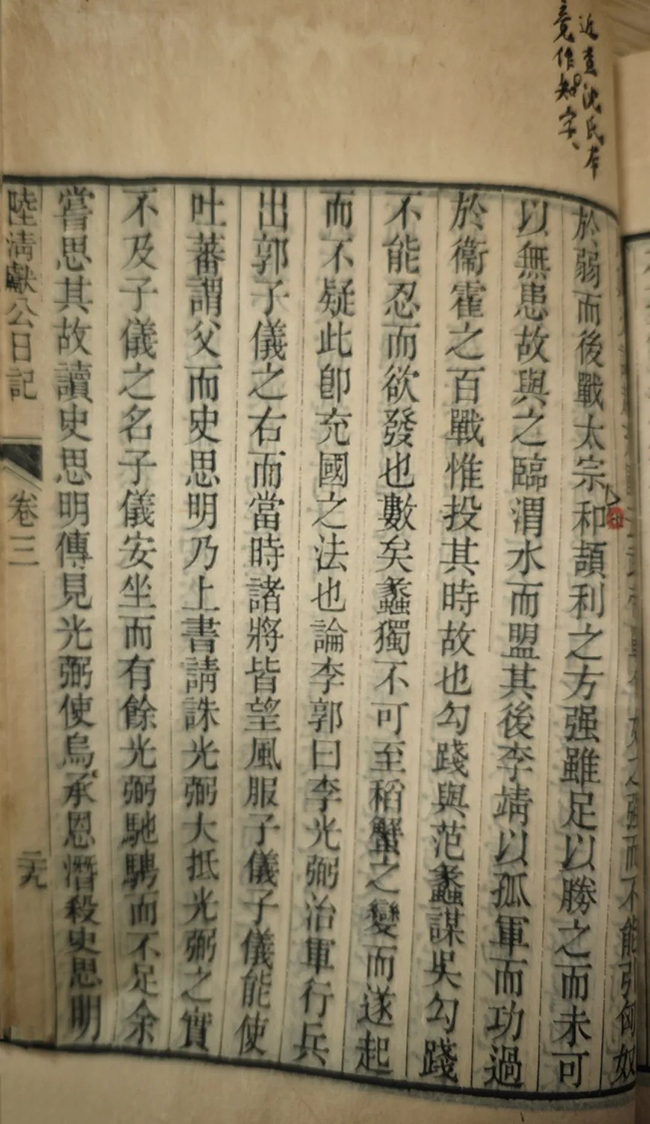 近查沈氏本
竟作知字、
於弱而後戰太宗和頡利之方强雖足以勝之而未可
以無患故與之臨渭水而盟其後李靖以孤軍而功過
於衞霍之百戰惟投其時故也勾踐與范蠡謀吳勾踐
不能忍而欲發也數矣蠡獨不可至稻蟹之變而遂起
而不疑此卽充國之法也論李郭曰李光弼治軍行兵
出郭子儀之右而當時諸將皆望風服子儀子儀能使
吐蕃謂父而史思明乃上書請誅光弼大抵光弼之實
不及子儀之名子儀安坐而有餘光弼馳騁而不足余
嘗思其故讀史思明傳見光弼使烏承恩潛殺史思明
陸清獻公日記
卷三
二九